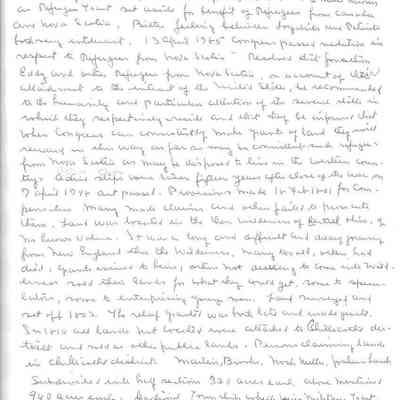 as Refugee Tract set aside for benefit of Refugees from Canada
and Nova Scotia. Bitter feeling between Loyalists and Patriots
13 April 1785 Congress passed resolution in
respect to Refugees from Nova Scotia "Resolved that Jonathan
Eddy and other Refugees from Nova Scotia, on account of their
attachment to the interest of the United States, be recommended
to the humanity and particular attention of the several states in
which they respectively reside and that they be informed that
when Congress can consistently make grants of land they will
reward in this way as far as may be consistent such refugees
from Nova Scotia as may be disposed to live in the western coun-
try. some fifteen years after close of the war on
7 April 1798 act passed. Provisions made 18 Feb 1801 for Com-
pensation Many made claims and others failed to present
them. Land was located in the then wilderness of Central Ohio, of
no known value. It was a long and difficult and weary journey
from New England thru the Wilderness, many too old, others had
died, grants came to heirs, others not willing to come into Wild-
erness sold their lands for what they could get, some to specu-
lators, some to enterprising young men. Land surveyed and
set off 1802. The relief granted was both late and inadequate.
In 1810 all lands not located were attached to Chillicothe dis-
trict and sold as other public lands. Persons claiming lands
in Chillicothe district: Martin Brooks, Noah Miller, Joshua Lamb
Subdivided into half sections 320 acres each above mentioned
960 acres each.